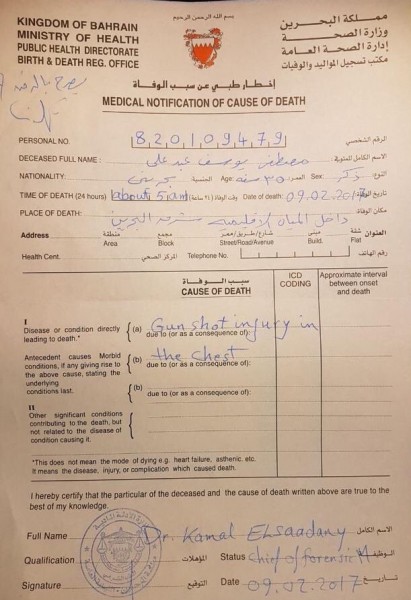 بسم الله الرحمن الرحيم
KINGDOM OF BAHRAIN
MINISTRY OF HEALTH
PUBLIC HEALTH DIRECTORATE
BIRTH & DEATH REG. OFFICE
مملكة البحرين
وزارة الصحة
إدارة الصحة العامة
مكتب تسجيل المواليد والوفيات
إخطار طبي عن سبب الوفاة
MEDICAL NOTIFICATION OF CAUSE OF DEATH
PERSONAL NO. 820109479 الرقم الشخصي
DECEASED FULL NAME : مصطفى يوسف عبد علي الاسم الكامل للمتوفى:
NATIONALITY: بحريني الجنسية: Age: ٣٥ سنة Sex: ذكر النوع:
TIME OF DEATH (24 hours) about 5 am وقت الوفاة (٢٤ ساعة) Date of death: 09.02.2017 تاريخ الوفاة
PLACE OF DEATH: داخل المياه الإقليمية البحرين مكان الوفاة
Address منطقة مجمع شارع/طريق/ممر مبنى شقة العنوان
Area Block Street/Road/Avenue Build. Flat
Health Cent. المركز الصحي Telephone No. رقم الهاتف
سبب الوفاة
CAUSE OF DEATH
ICD CODING
Approximate interval between onset and death
I
Disease or condition directly leading to death.*
(a) Gun shot injury in
due to (or as a consequence of):
Antecedent causes Morbid conditions, if any giving rise to the above cause, stating the underlying conditions last.
(b) the chest
due to (or as a consequence of):
(b)
due to (or as a consequence of):
II
Other significant conditions contributing to the death, but not related to the disease of condition causing it.
*This does not mean the mode of dying e.g. heart failure, asthenic. etc.
It means the disease, injury, or complication which caused death.
I hereby certify that the particular of the deceased and the cause of death written above are true to the best of my knowledge.
Full Name Dr. Kamal Elsaadany الاسم الكامل
Qualification المؤهلات Status Chief of forensic M الوظيفة
Signature التوقيع Date 09.02.2017 تاريخ